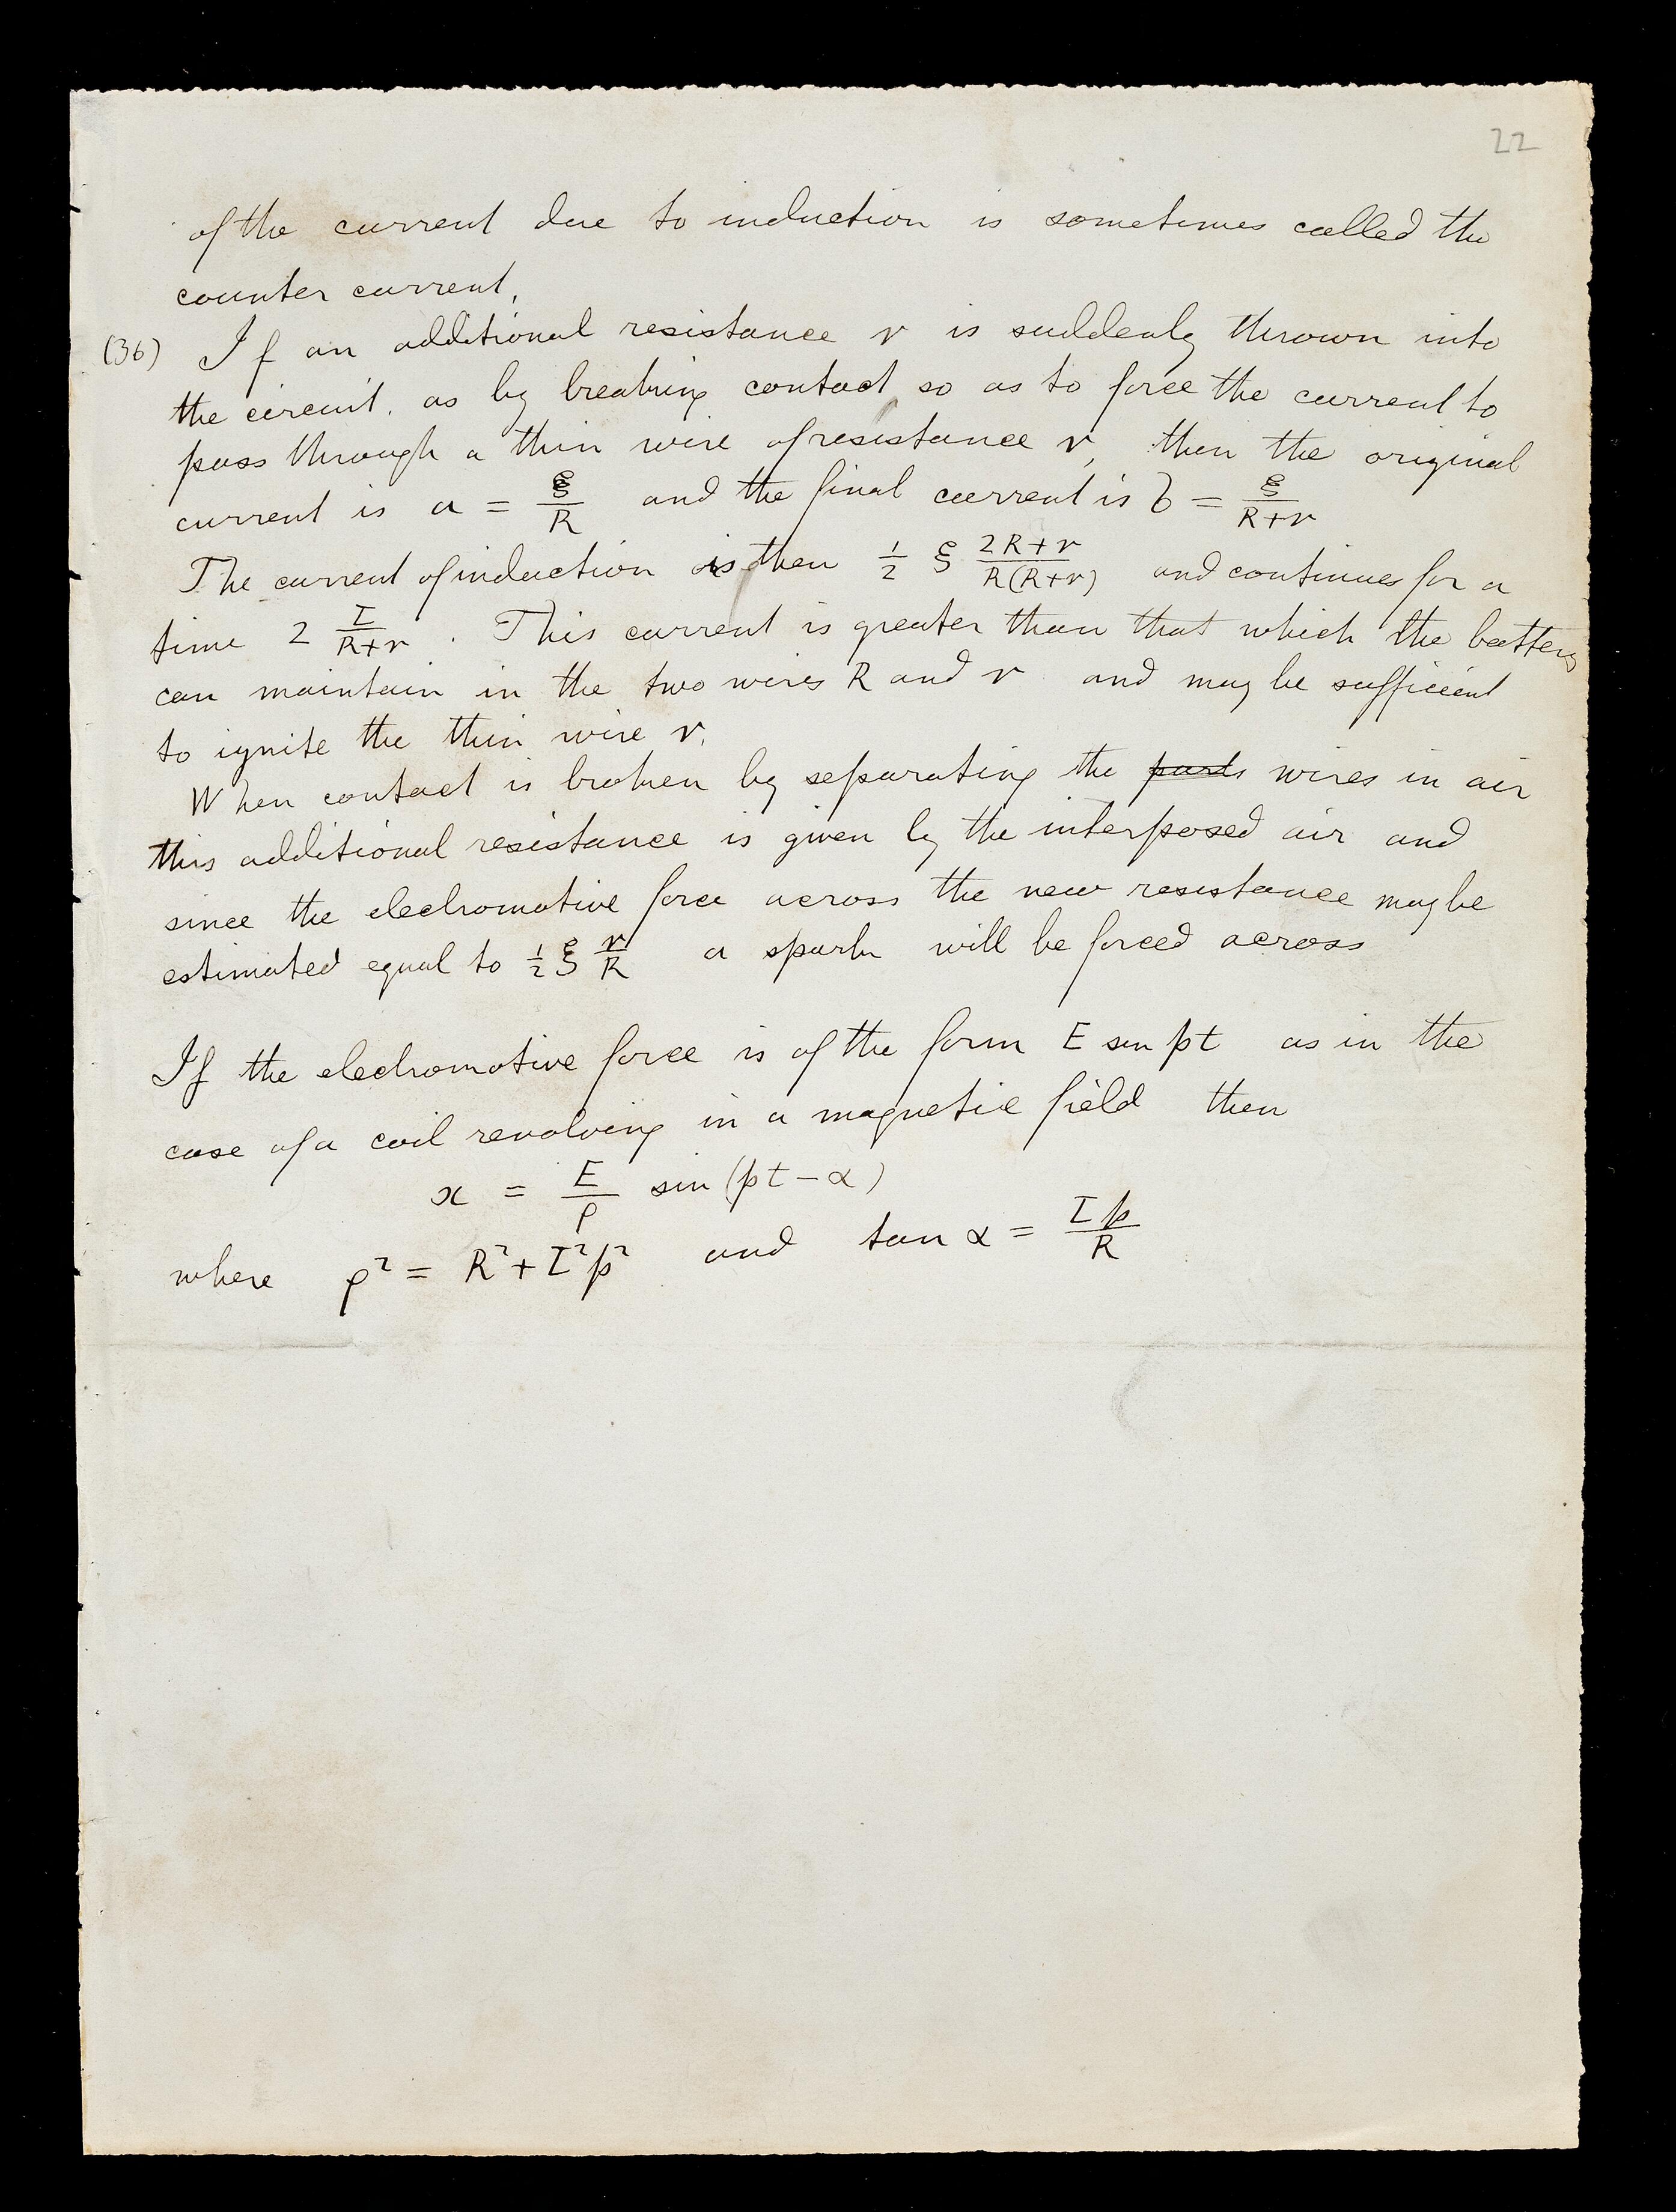 22
of the current due to induction is sometimes called the
counter current.
(36) If an additional resistance r is suddenly thrown into
the circuit, as by breaking contact so as to force the current to
pass through a thin wire of resistance r, then the original
current is a = ξ/R and the final current is b = ξ/(R+r)
The current of induction is then 1/2 ξ (2R+r)/(R(R+r)) and continues for a
time 2 I/(R+r). This current is greater than that which the battery
can maintain in the two wires R and r and may be sufficient
to ignite the thin wire r.
When contact is broken by separating the parts wires in air
this additional resistance is given by the interposed air and
since the electromotive force across the new resistance may be
estimated equal to 1/2 ξ r/R a spark will be forced across
If the electromotive force is of the form E sin pt as in the
case of a coil revolving in a magnetic field then
x = E/ρ sin (pt − α)
where ρ² = R² + I²p² and tan α = Ip/R